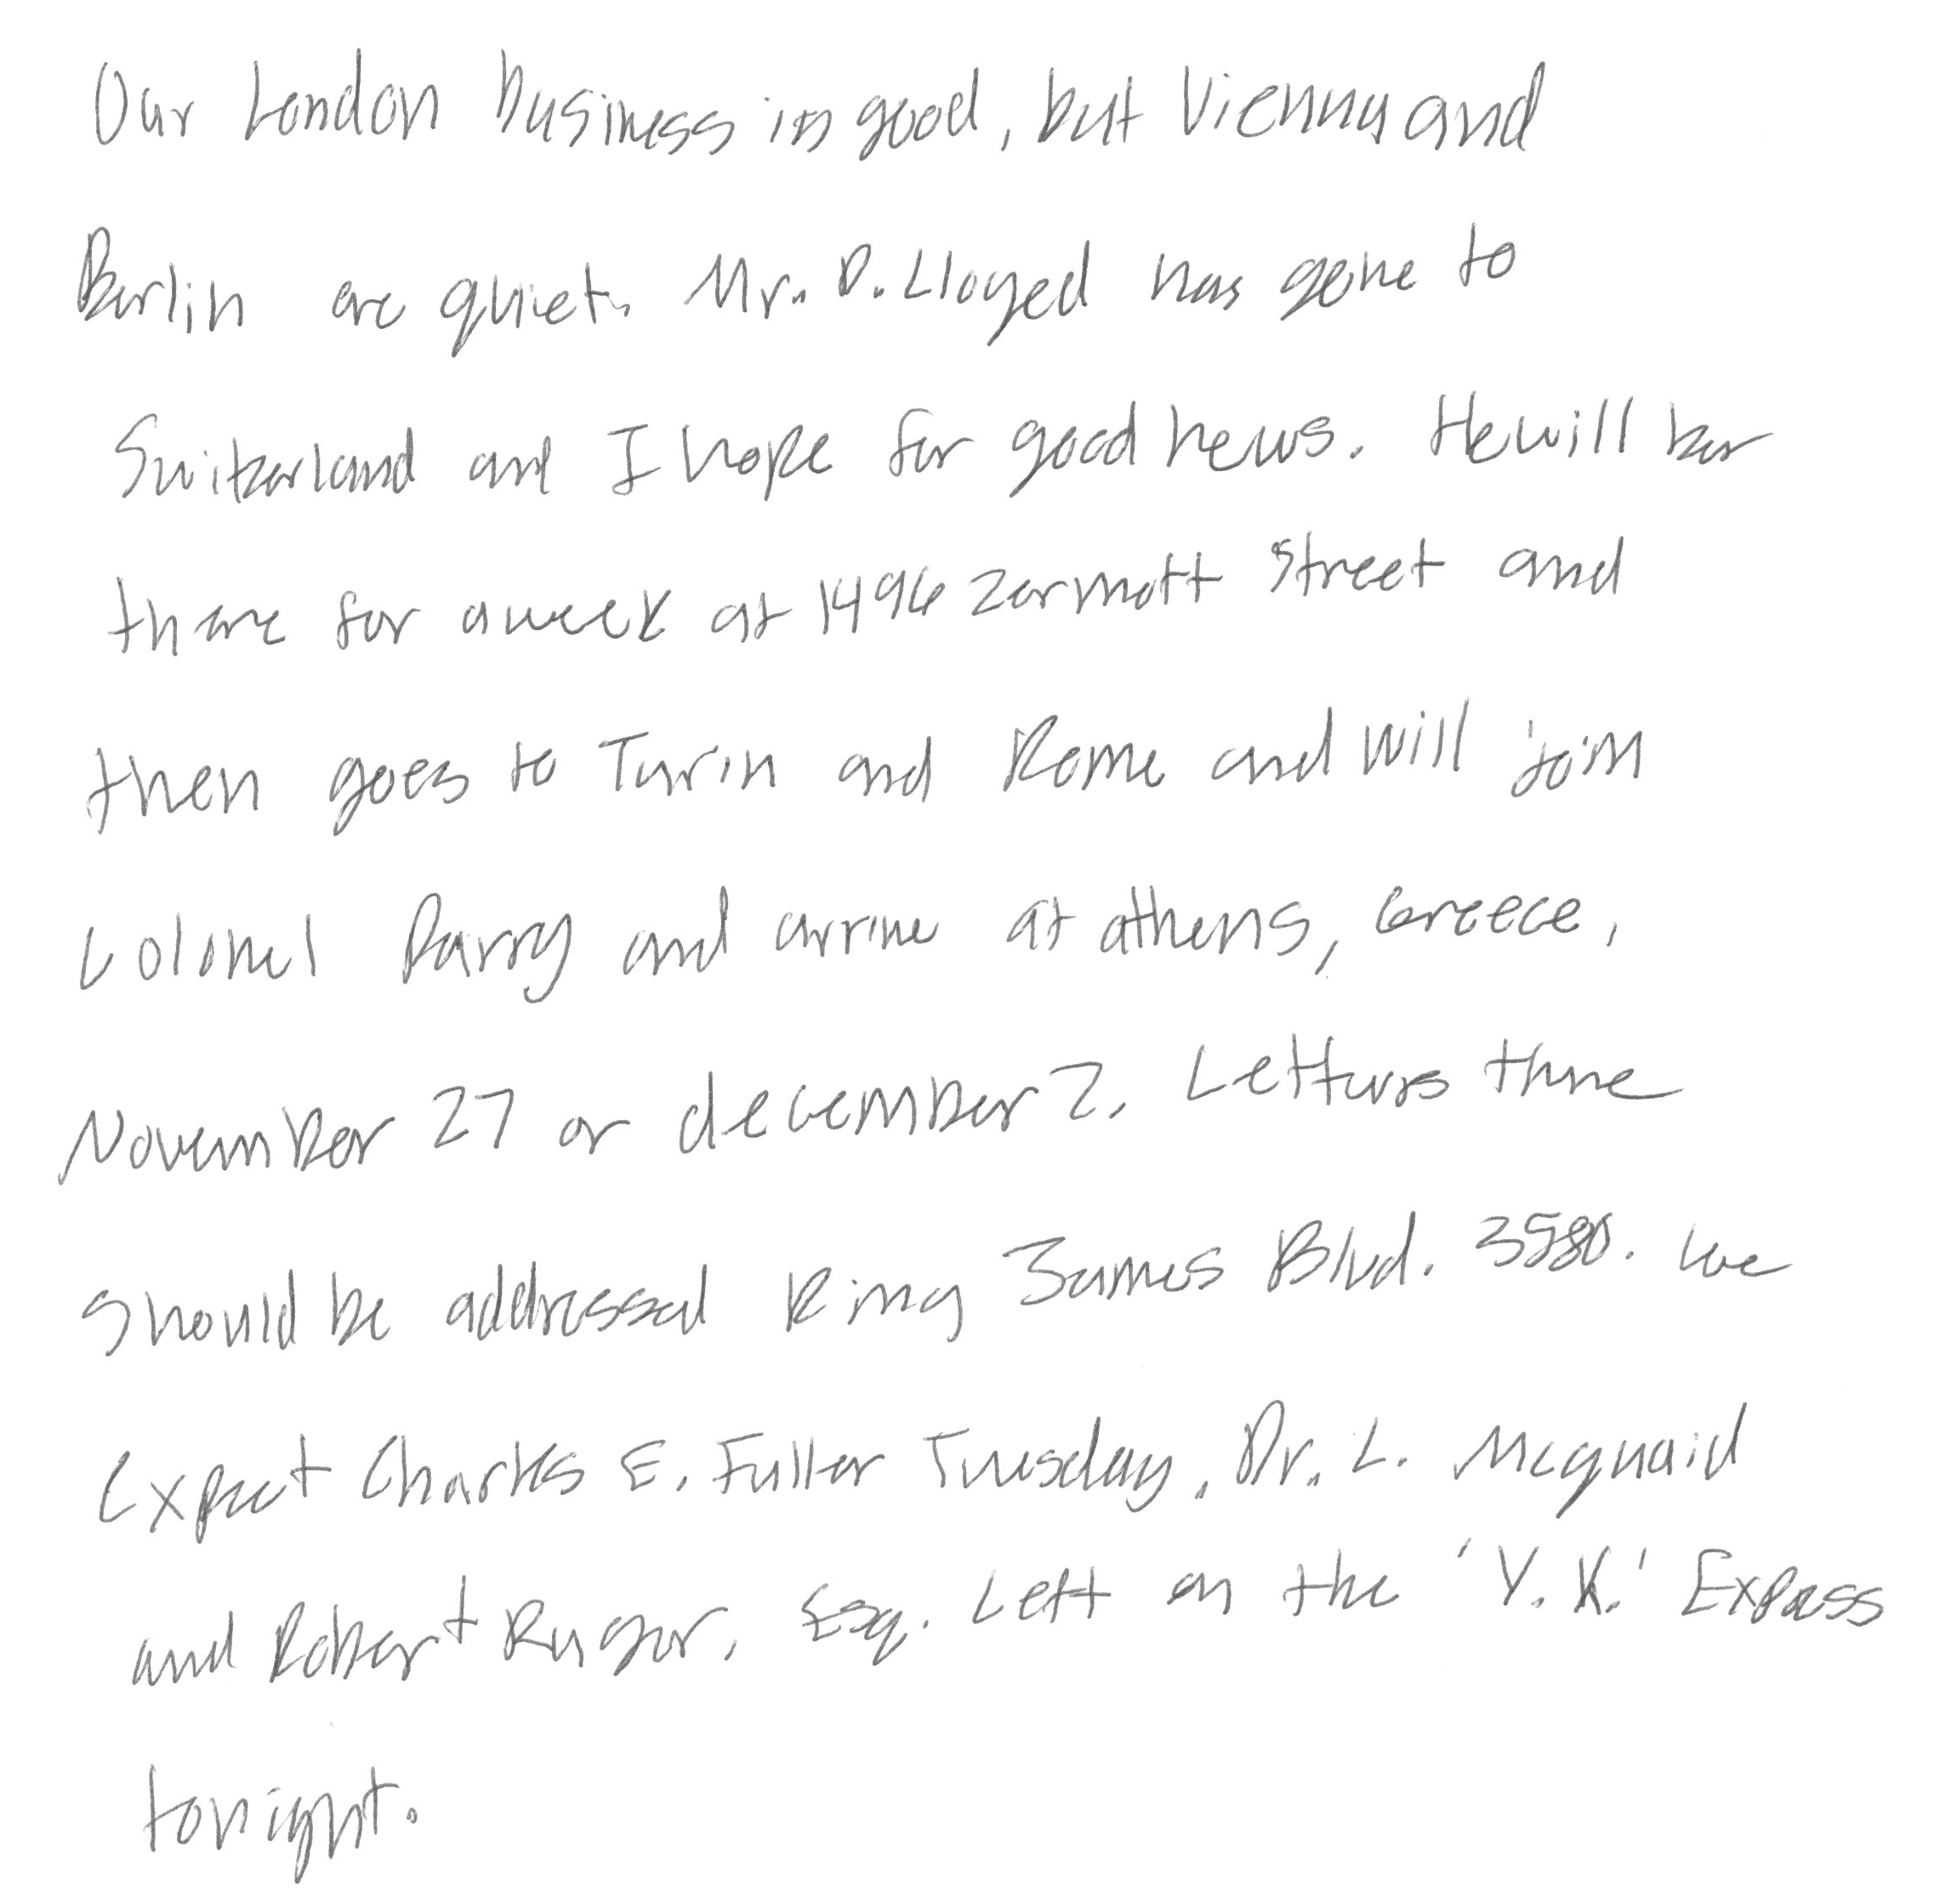 Our London business is good, but Vienna and
Berlin are quiet. Mr. D. Lloyed has gone to
Switzerland and I hope for good news. He will be
there for a week at 1496 Zermott Street and
then goes to Turin and Rome and will join
Colonel Parry and arrive at athens, Greece,
November 27 or december 2. Letters there
should be addressed King James Blvd. 3580. We
expect Charles E. Fuller Tuesday. Dr. L. Mcquaid
and Robert Ruger, Esq. Left on the 'Y.X.' Express
tonight.